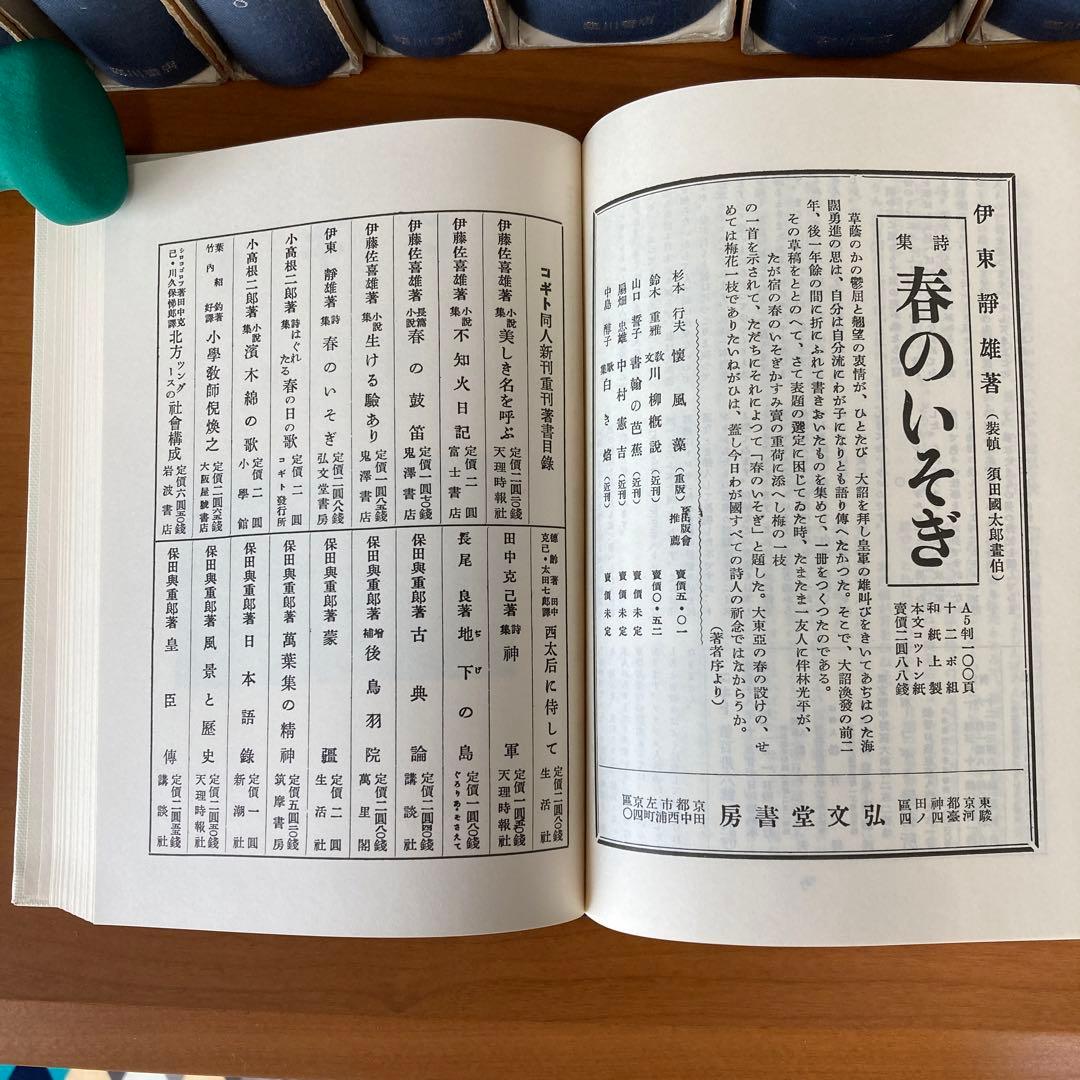 伊東靜雄著（裝幀　須田國太郎畫伯）
詩集　春のいそぎ
A5判一〇〇頁
十二ポ組
和紙上製
本文コツトン紙
賣價二圓八八錢
草蔭のかの鬱屈と翹望の衷情が、ひとたび　大詔を拜し皇軍の雄叫びをきいてあぢはつた海
闊勇進の思は、自分は自分流にわが子になりとも語り傳へたかつた。そこで、大詔渙發の前二
年、後一年餘の間に折にふれて書きおいたものを集めて、一册をつくつたのである。
その草稿をととのへて、さて表題の選定に困じてゐた時、たまたま一友人に伴林光平が、
たが宿の春のいそぎかすみ賣の重荷に添へし梅の一枝
の一首を示されて、ただちにそれによつて「春のいそぎ」と題した。大東亞の春の設けの、せ
めては梅花一枝でありたいねがひは、蓋し今日わが國すべての詩人の祈念ではなからうか。
（著者序より）
杉本行夫　懷風藻（重版）出版會推薦　賣價五・〇一
鈴木重雅　敎文川柳概說（近刊）賣價〇・五二
山口誓子　書翰の芭蕉（近刊）賣價未定
扇畑忠雄　中村憲吉（近刊）賣價未定
中島　歌集　白き焰（近刊）賣價未定
東京都神田區駿河臺四ノ四
弘文堂書房
京都市左京區田中西浦町四〇
コギト同人新刊重刊著書目錄
伊藤佐喜雄著　小說集　美しき名を呼ぶ　定價二圓三〇錢　天理時報社
伊藤佐喜雄著　小說集　不知火日記　定價二圓　富士書店
伊藤佐喜雄著　長篇小說　春の鼓笛　定價一圓七〇錢　鬼澤書店
伊藤佐喜雄著　小說集　生ける驗あり　定價一圓八五錢　鬼澤書店
伊東靜雄著　詩集　春のいそぎ　定價二圓八八錢　弘文堂書房
小高根二郎著　詩集　はぐれたる春の日の歌　定價二圓　コギト發行所
小高根二郎著　小說集　濱木綿の歌　定價二圓　小學館
葉紹鈞著　竹内好譯　小學敎師倪煥之　定價二圓六五錢　大阪屋號書店
シロコゴロフ著田中克己・川久保悌郎譯　北方ツングースの社會構成　定價六圓五〇錢　岩波書店
德齡著　田中克己・太田七郎譯　西太后に侍して　定價二圓八〇錢　生活社
田中克己著　詩集　神軍　定價一圓五〇錢　天理時報社
長尾良著　地下の島　定價一圓八〇錢　ぐろりあ・そさえて
保田與重郎著　古典論　定價二圓四〇錢　講談社
保田與重郎著　增補　後鳥羽院　定價二圓八〇錢　萬里閣
保田與重郎著　蒙疆　定價二圓　生活社
保田與重郎著　萬葉集の精神　定價五圓三〇錢　筑摩書房
保田與重郎著　日本語錄　定價一圓　新潮社
保田與重郎著　風景と歷史　定價二圓五〇錢　天理時報社
保田與重郎著　皇臣傳　定價二圓五五錢　講談社